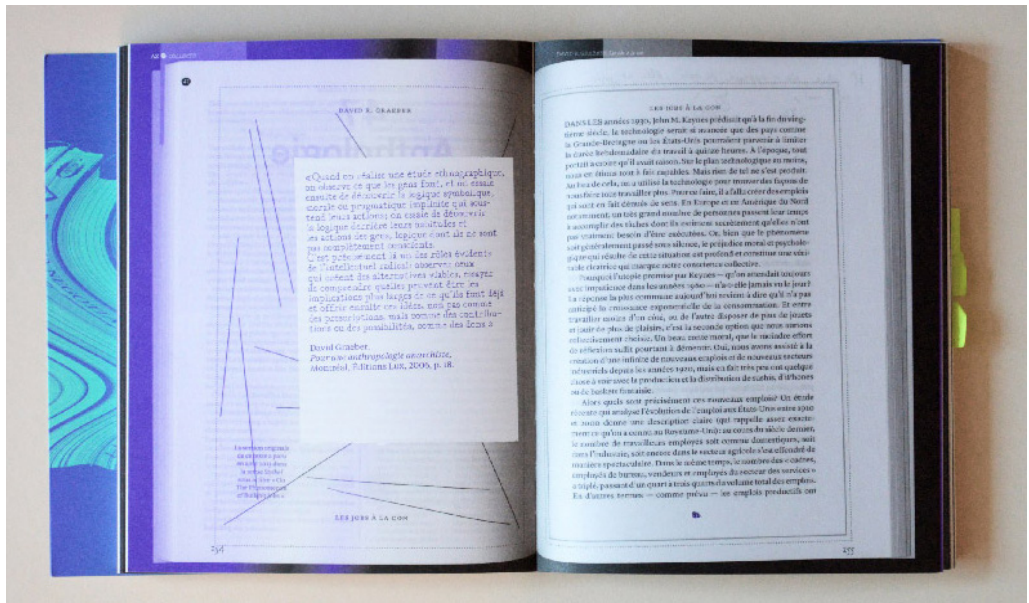 DAVID R. GRAEBER
Anthologie
«Quand on réalise une étude ethnographique,
on observe ce que les gens font, et on essaie
ensuite de découvrir la logique symbolique,
morale ou pragmatique implicite qui sous-
tend leurs actions; on essaie de découvrir
la logique derrière leurs habitudes et
les actions des gens, logique dont ils ne sont
pas complètement conscients.
C'est précisément là un des rôles évidents
de l'intellectuel radical: observer ceux
qui créent des alternatives viables, essayer
de comprendre quelles peuvent être les
implications plus larges de ce qu'ils font déjà
et offrir ensuite ces idées, non pas comme
des prescriptions, mais comme des contribu-
tions ou des possibilités, comme des dons.»
David Graeber,
Pour une anthropologie anarchiste,
Montréal, Éditions Lux, 2006, p. 18.
LES JOBS À LA CON
254
LES JOBS À LA CON
DANS LES années 1930, John M. Keynes prédisait qu'à la fin du ving-
tième siècle, la technologie serait si avancée que des pays comme
la Grande-Bretagne ou les États-Unis pourraient parvenir à limiter
la durée hebdomadaire du travail à quinze heures. À l'époque, tout
portait à croire qu'il avait raison. Sur le plan technologique au moins,
nous en étions tout à fait capables. Mais rien de tel ne s'est produit.
Au lieu de cela, on a utilisé la technologie pour trouver des façons de
nous faire tous travailler plus. Pour ce faire, il a fallu créer des emplois
qui sont en fait dénués de sens. En Europe et en Amérique du Nord
notamment, un très grand nombre de personnes passent leur temps
à accomplir des tâches dont ils estiment secrètement qu'elles n'ont
pas vraiment besoin d'être exécutées. Or, bien que le phénomène
soit généralement passé sous silence, le préjudice moral et psycholo-
gique qui résulte de cette situation est profond et constitue une véri-
table cicatrice qui marque notre conscience collective.
Pourquoi l'utopie promise par Keynes — qu'on attendait toujours
avec impatience dans les années 1960 — n'a-t-elle jamais vu le jour?
La réponse la plus commune aujourd'hui revient à dire qu'il n'a pas
anticipé la croissance exponentielle de la consommation. Et entre
travailler moins d'un côté, ou de l'autre disposer de plus de jouets
et jouir de plus de plaisirs, c'est la seconde option que nous aurions
collectivement choisie. Un beau conte moral, que le moindre effort
de réflexion suffit pourtant à démentir. Oui, nous avons assisté à la
création d'une infinité de nouveaux emplois et de nouveaux secteurs
industriels depuis les années 1920, mais en fait très peu ont quelque
chose à voir avec la production et la distribution de sushis, d'iPhones
ou de baskets fantaisie.
Alors quels sont précisément ces nouveaux emplois? Un étude
récente qui analyse l'évolution de l'emploi aux États-Unis entre 1910
et 2000 donne une description claire (qui rappelle assez exacte-
ment ce qu'on a connu au Royaume-Uni): au cours du siècle dernier,
le nombre de travailleurs employés soit comme domestiques, soit
dans l'industrie, soit encore dans le secteur agricole s'est effondré de
manière spectaculaire. Dans le même temps, le nombre des « cadres,
employés de bureau, vendeurs et employés du secteur des services »
a triplé, passant d'un quart à trois quarts du volume total des emplois.
En d'autres termes — comme prévu — les emplois productifs ont
255